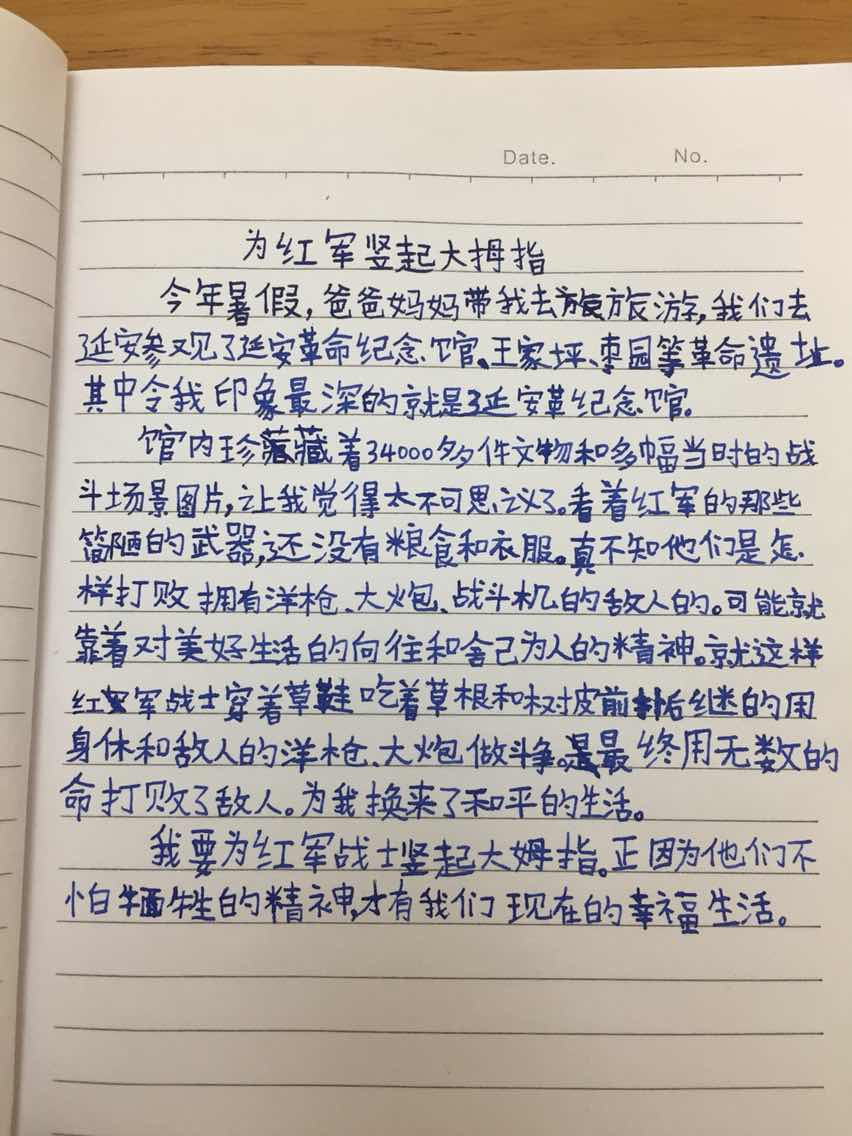 Date. No.
为红军竖起大拇指
今年暑假，爸爸妈妈带我去旅游，我们去
延安参观了延安革命纪念馆、王家坪、枣园等革命遗址。
其中令我印象最深的就是延安革纪念馆。
馆内珍藏着34000多件文物和多幅当时的战
斗场景图片，让我觉得太不可思议了。看着红军的那些
简陋的武器，还没有粮食和衣服。真不知他们是怎
样打败拥有洋枪、大炮、战斗机的敌人的。可能就
靠着对美好生活的向往和舍己为人的精神。就这样
红军战士穿着草鞋吃着草根和树皮前后继的用
身体和敌人的洋枪、大炮做斗争。最终用无数的
命打败了敌人。为我换来了和平的生活。
我要为红军战士竖起大姆指。正因为他们不
怕牺牲的精神，才有我们现在的幸福生活。